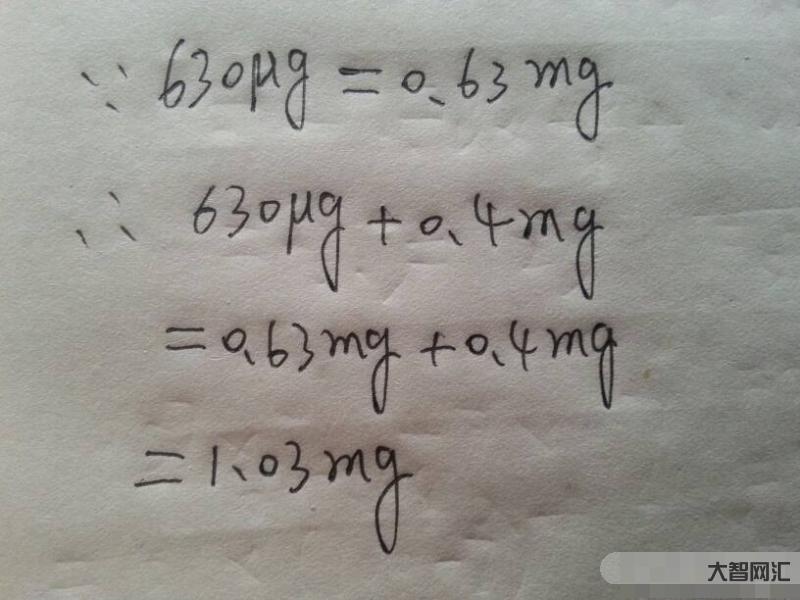 ∵ 630μg = 0.63mg
∴ 630μg + 0.4mg
= 0.63mg + 0.4mg
= 1.03mg
大智网汇